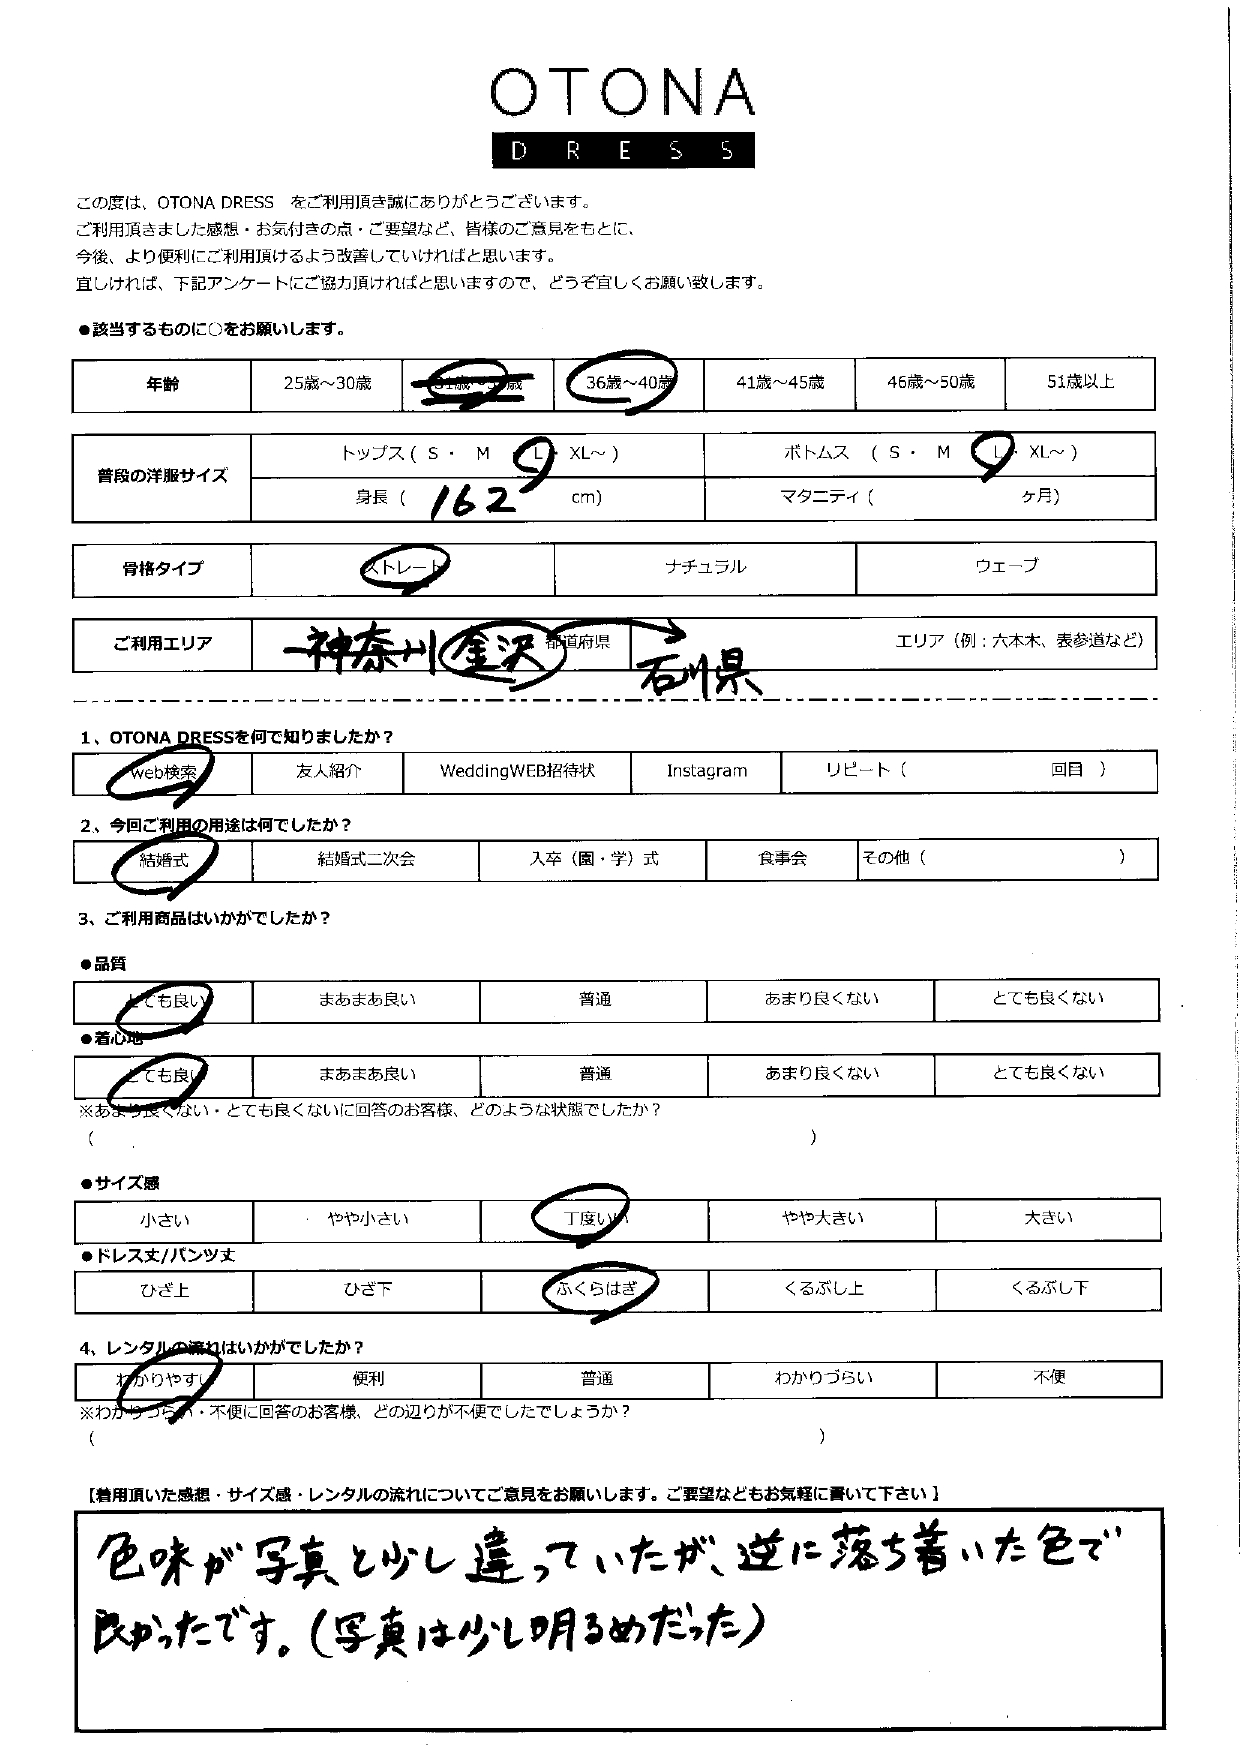 OTONA
DRESS
この度は、OTONA DRESS をご利用頂き誠にありがとうございます。
ご利用頂きました感想・お気付きの点・ご要望など、皆様のご意見をもとに、
今後、より便利にご利用頂けるよう改善していければと思います。
宜しければ、下記アンケートにご協力頂ければと思いますので、どうぞ宜しくお願い致します。
●該当するものに○をお願いします。
年齢 25歳～30歳 31歳～35歳 36歳～40歳 41歳～45歳 46歳～50歳 51歳以上
普段の洋服サイズ トップス ( S ・ M ・ L ・ XL～ ) ボトムス ( S ・ M ・ L ・ XL～ )
身長 ( 162 cm) マタニティ ( ヶ月)
骨格タイプ ストレート ナチュラル ウェーブ
ご利用エリア 神奈川 金沢 都道府県 石川県 エリア（例：六本木、表参道など）
1、OTONA DRESSを何で知りましたか？
web検索 友人紹介 WeddingWEB招待状 Instagram リピート（ 回目 ）
2、今回ご利用の用途は何でしたか？
結婚式 結婚式二次会 入卒（園・学）式 食事会 その他（ ）
3、ご利用商品はいかがでしたか？
●品質
とても良い まあまあ良い 普通 あまり良くない とても良くない
●着心地
とても良い まあまあ良い 普通 あまり良くない とても良くない
※あまり良くない・とても良くないに回答のお客様、どのような状態でしたか？
（ ）
●サイズ感
小さい やや小さい 丁度いい やや大きい 大きい
●ドレス丈/パンツ丈
ひざ上 ひざ下 ふくらはぎ くるぶし上 くるぶし下
4、レンタルの流れはいかがでしたか？
わかりやすい 便利 普通 わかりづらい 不便
※わかりづらい・不便に回答のお客様、どの辺りが不便でしたでしょうか？
（ ）
【着用頂いた感想・サイズ感・レンタルの流れについてご意見をお願いします。ご要望などもお気軽に書いて下さい】
色味が写真と少し違っていたが、逆に落ち着いた色で
良かったです。(写真は少し明るめだった)